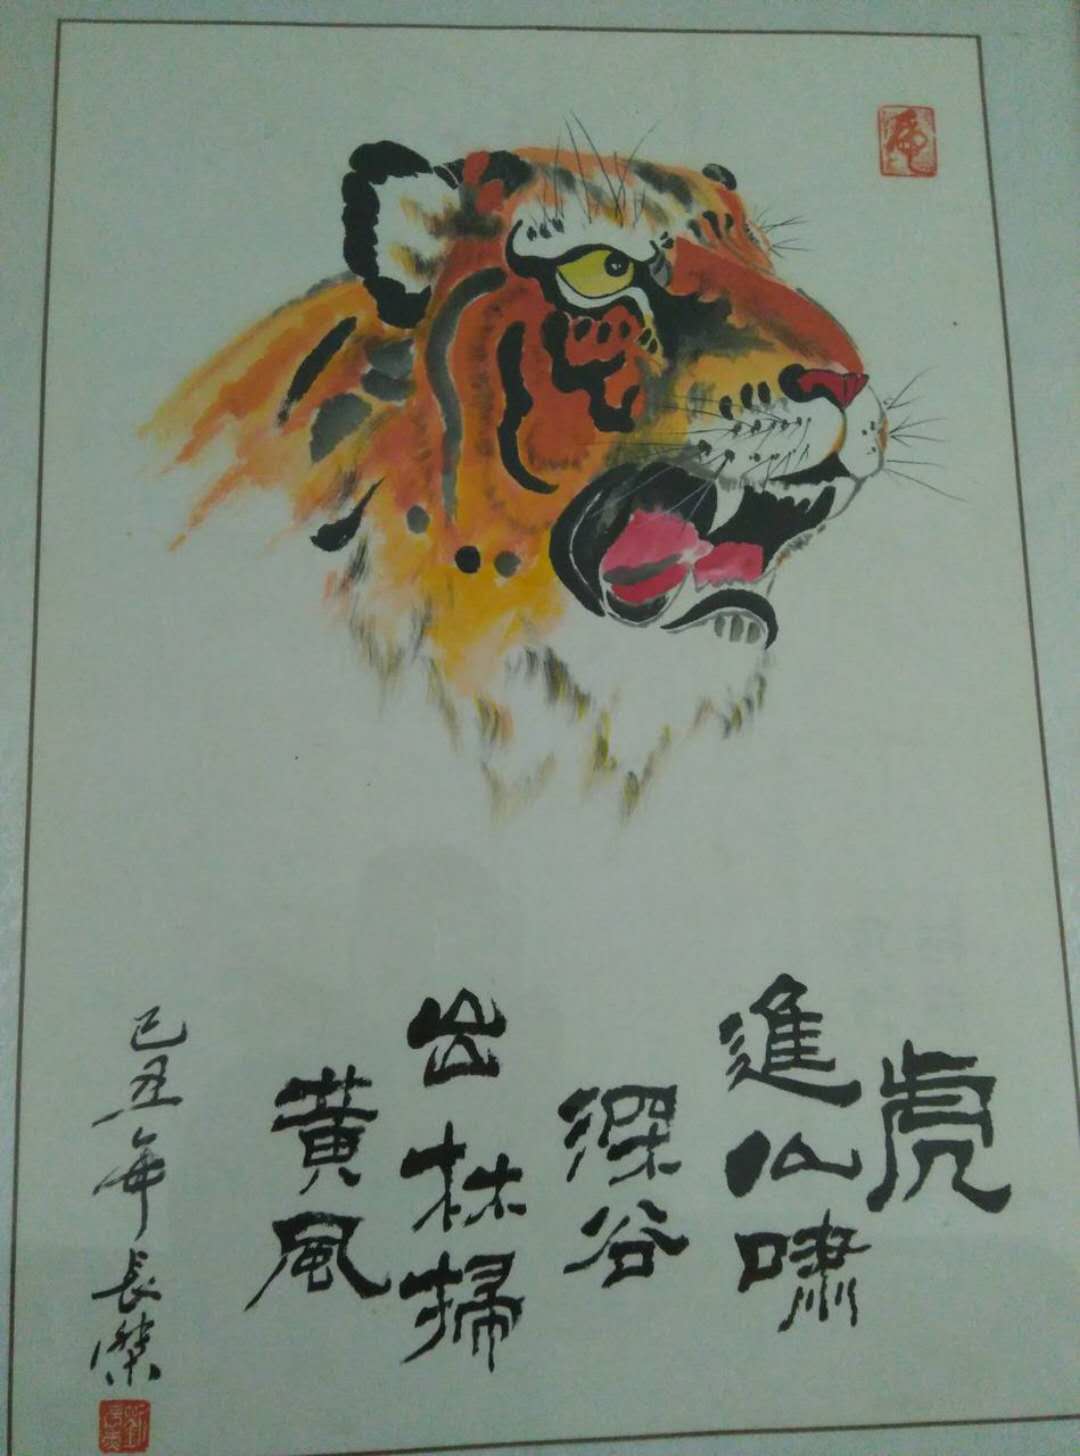 虎
進山嘯
深谷
出林掃
黃風
己丑年長傑